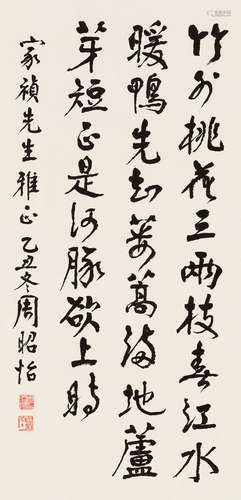 竹外桃花三两枝春江水
暖鸭先知蒌蒿满地芦
芽短正是河豚欲上时
家祯先生雅正乙丑冬周昭怡